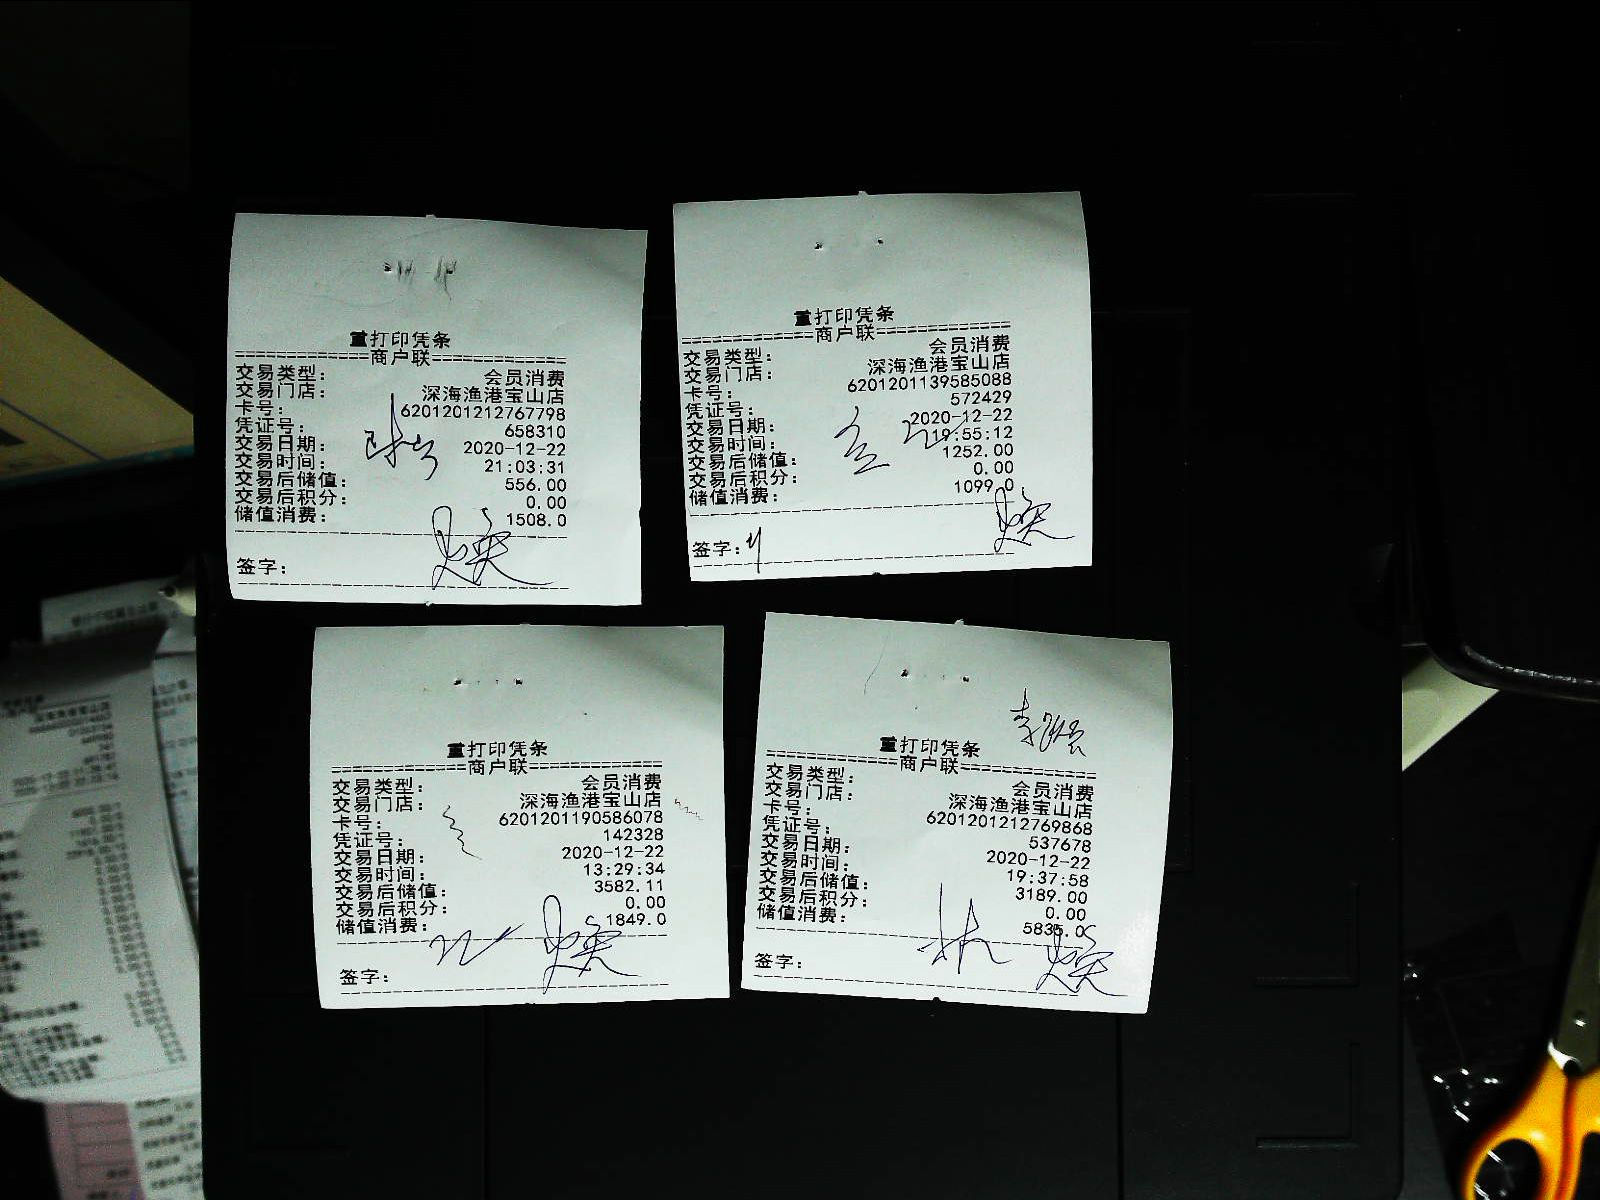 重打印凭条
=============商户联=============
交易类型: 会员消费
交易门店: 深海渔港宝山店
卡号: 6201201212767798
凭证号: 658310
交易日期: 2020-12-22
交易时间: 21:03:31
交易后储值: 556.00
交易后积分: 0.00
储值消费: 1508.0
签字:
重打印凭条
=============商户联=============
交易类型: 会员消费
交易门店: 深海渔港宝山店
卡号: 6201201139585088
凭证号: 572429
交易日期: 2020-12-22
交易时间: 19:55:12
交易后储值: 1252.00
交易后积分: 0.00
储值消费: 1099.0
签字:
重打印凭条
=============商户联=============
交易类型: 会员消费
交易门店: 深海渔港宝山店
卡号: 6201201190586078
凭证号: 142328
交易日期: 2020-12-22
交易时间: 13:29:34
交易后储值: 3582.11
交易后积分: 0.00
储值消费: 1849.0
签字:
重打印凭条
=============商户联=============
交易类型: 会员消费
交易门店: 深海渔港宝山店
卡号: 6201201212769868
凭证号: 537678
交易日期: 2020-12-22
交易时间: 19:37:58
交易后储值: 3189.00
交易后积分: 0.00
储值消费: 5835.0
签字: